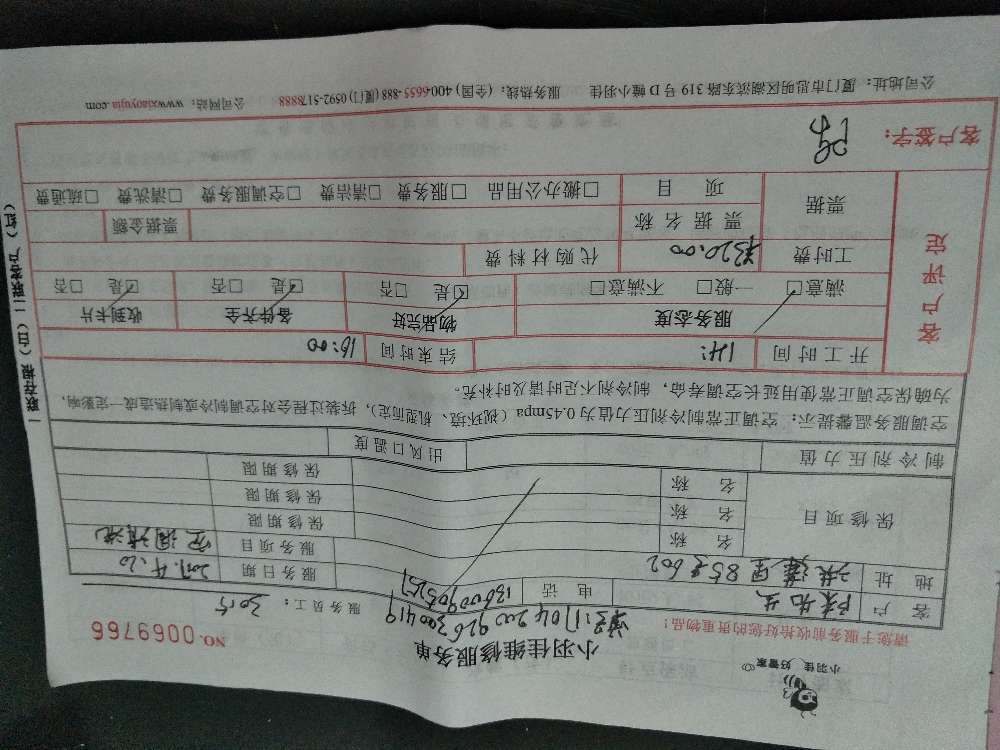 小羽佳 好管家
小羽佳维修服务单
单号:1704200926300419
请您于服务前收拾好您的贵重物品!
NO. 0069766
服务员工:
客 户
电 话
地 址 85号602
服务日期 2017.4.20
服务项目 空调清洗
保修项目
名 称 保修期限
名 称 保修期限
名 称 保修期限
制冷剂压力值 出风口温度
空调服务温馨提示:空调正常制冷剂压力值为0.45mpa(视环境、机型而定),拆装过程会对空调制冷或制热造成一定影响,
为确保空调正常使用延长空调寿命,制冷剂不足时请及时补充。
开工时间 14: 结束时间 16:00
客户评定
服务态度 物品完好 备件齐全 收到卡片
满意□ 一般□ 不满意□ □是 □否 □是 □否 □是 □否
工时费 ¥320.00 代购材料费
票据 票据名称 票据金额
项 目 □搬办公用品 □服务费 □清洁费 □空调服务费 □清洗费 □疏通费
客户签字:
公司地址:厦门市思明区湖滨东路319号D幢小羽佳 服务热线:(全国)400-6655-888(厦门)0592-5178888 公司网站:www.xiaoyujia.com
一联存根(白)二联客户(红)